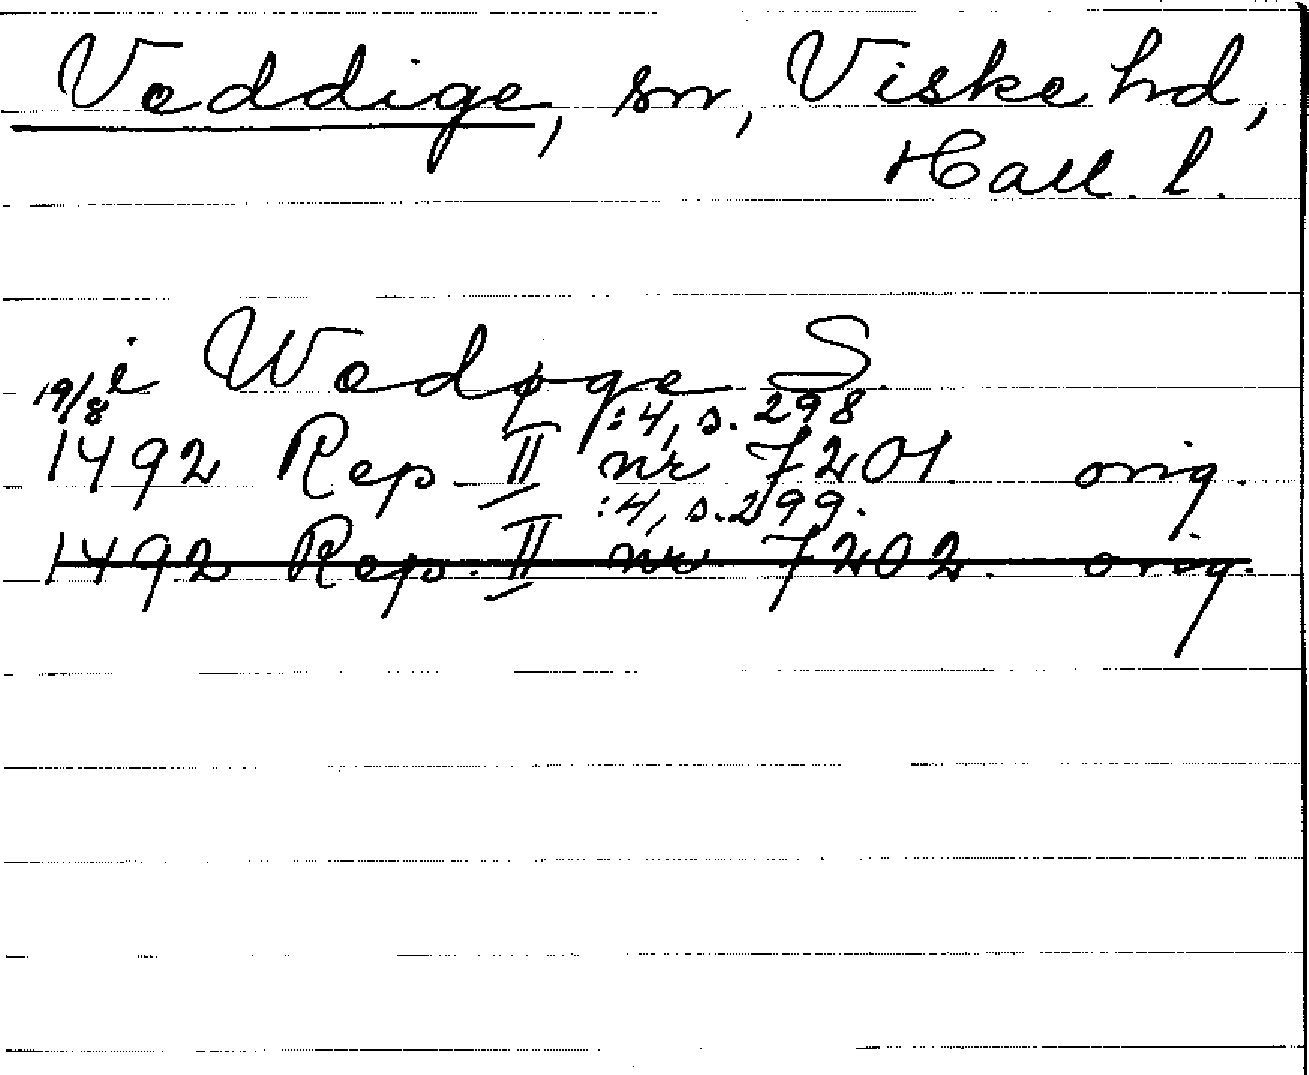 Veddige, sn, Viske hd,
Hall. l.
i Wedøge S.
19/8 :4, s. 298
1492 Rep. II nr 7201. orig.
:4, s. 299.
1492 Rep. II nr 7202. orig.